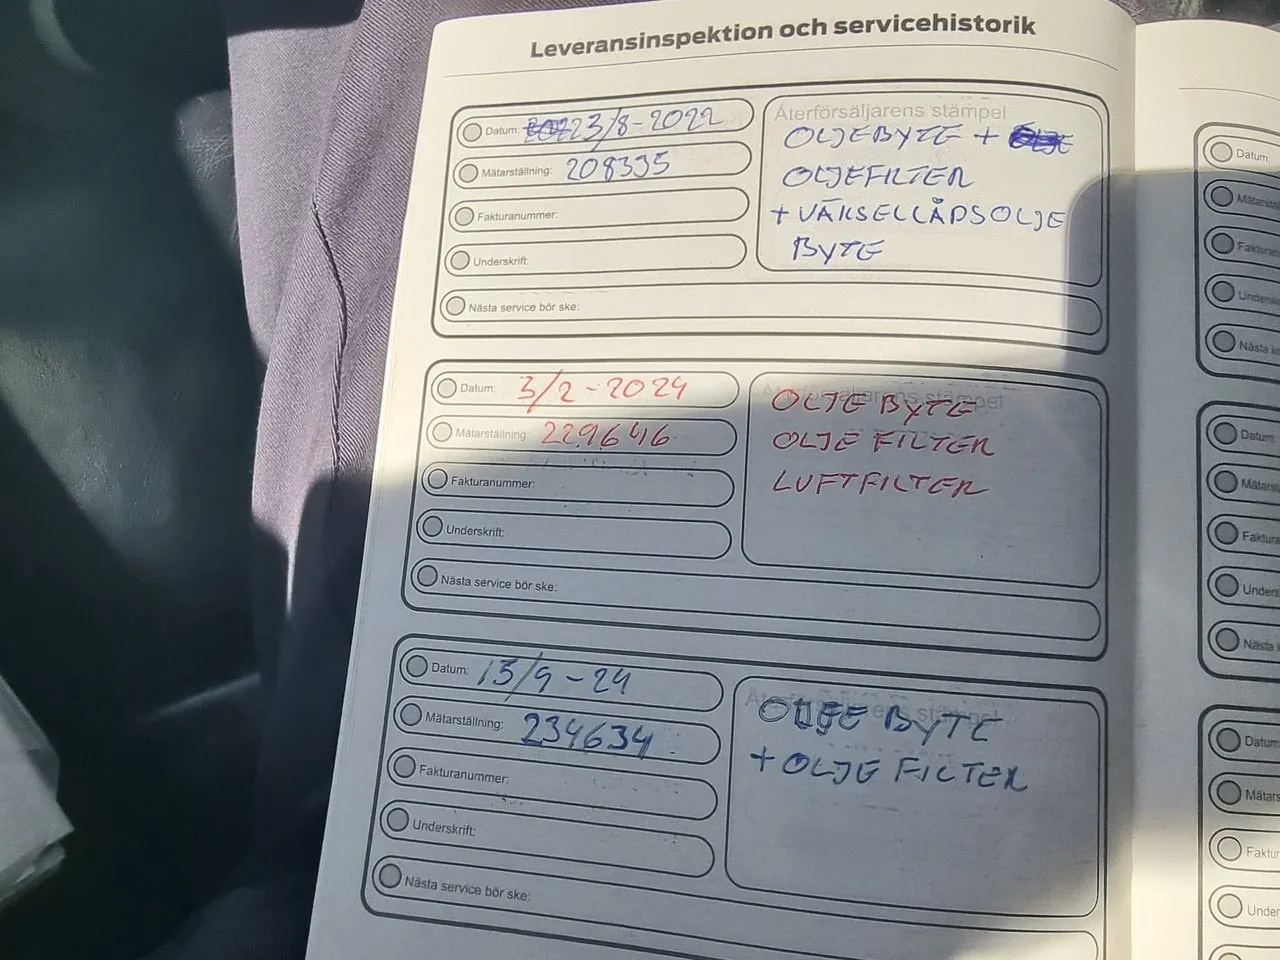 Leveransinspektion och servicehistorik
Datum: 23/8-2022
Mätarställning: 208335
Fakturanummer:
Underskrift:
Nästa service bör ske:
Återförsäljarens stämpel
OLJEBYTE +
OLJEFILTER
+ VÄXSELLÅDSOLJE
BYTE
Datum: 3/2-2024
Mätarställning: 229646
Fakturanummer:
Underskrift:
Nästa service bör ske:
Återförsäljarens stämpel
OLJE BYTE
OLJE FILTER
LUFTFILTER
Datum: 15/9-24
Mätarställning: 234634
Fakturanummer:
Underskrift:
Nästa service bör ske:
OLJE BYTE
+ OLJE FILTER
Datum:
Datum:
Datum: